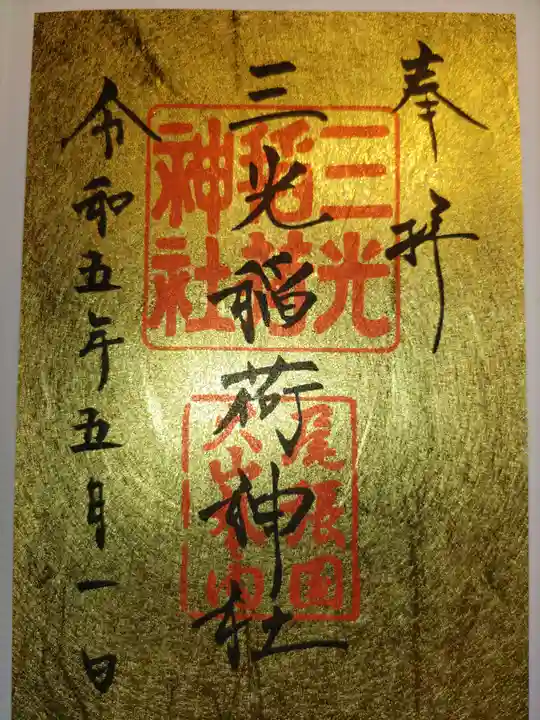 奉拝
三光稲荷神社
令和五年五月一日
三光
稲荷
神社
尾張国
犬山城内